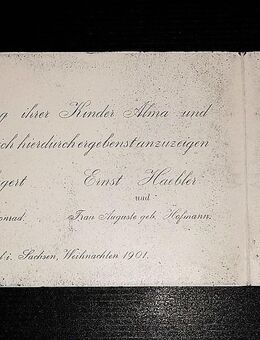 g ihrer Kinder Alma und
ich hierdurch ergebenst anzuzeigen
gert Ernst Haebler
und
onrad. Frau Auguste geb. Hofmann.
i. Sachsen, Weihnachten 1901.